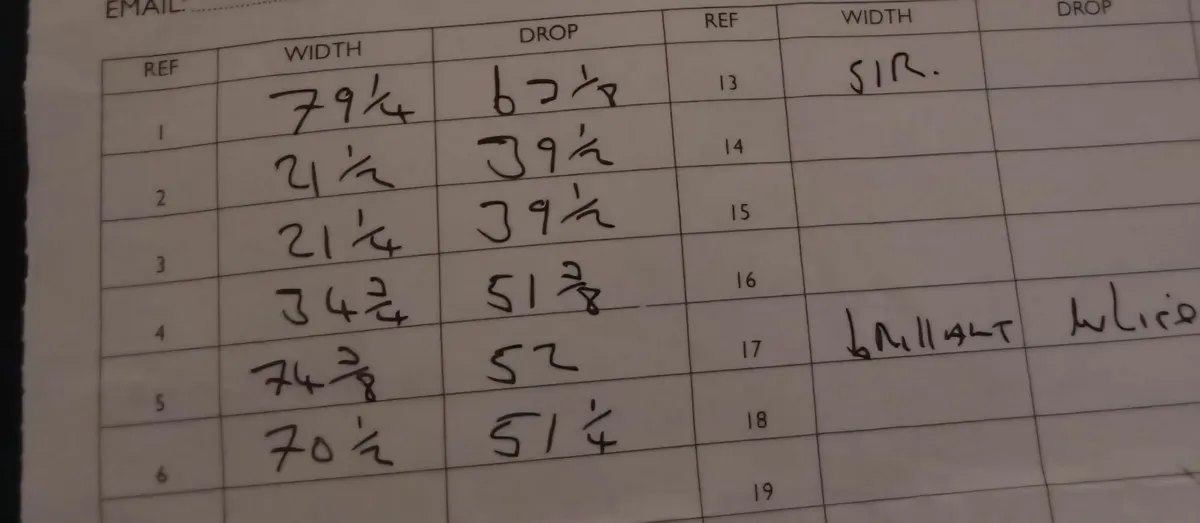 EMAIL:
REF WIDTH DROP REF WIDTH DROP
1 79 1/4 63 1/8 13 SIR.
2 21 1/2 39 1/2 14
3 21 1/4 39 1/2 15
4 34 3/4 51 3/8 16
5 74 3/8 52 17 brillIANT white
6 70 1/2 51 1/4 18
19